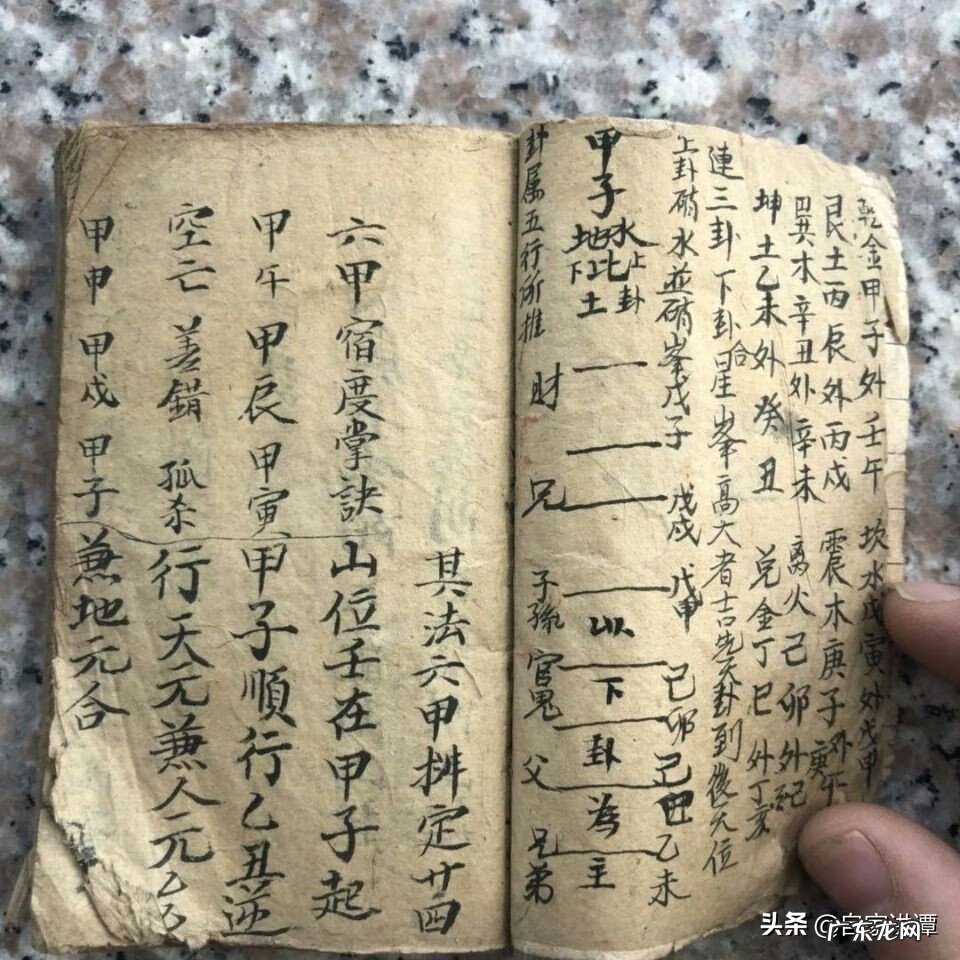 乾金甲子外壬午 坎水戊寅外戊申
艮土丙辰外丙戌 震木庚子外庚午
巽木辛丑外辛未 离火己卯外己
坤土乙未外癸丑 兑金丁巳外丁亥
連三卦下卦合星峯高大者士吉先天卦到後天位
上卦硝水並硝峯戊子 戊戌 戊申 己卯 己巳 乙未
甲子 水地比 上卦 下土
以下卦為主
卦属五行所推 財 兄 子孫 官鬼 父 兄弟
其法六甲排定廿四
六甲宿度掌訣 山位壬在甲子起
甲午 甲辰 甲寅 甲子順行乙丑逆
空亡 差錯 孤杀 行天元兼人元乙
甲申 甲戌 甲子 兼地元合
头条 @客家洪谭
广东龙网